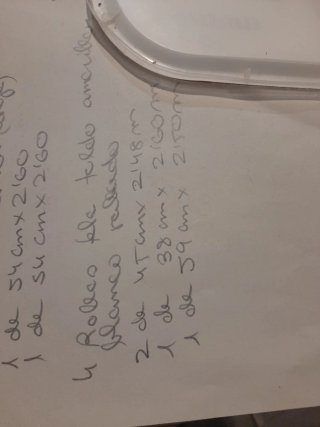 1 de 54 cm x 2'60
1 de 54 cm x 2'60
4 Rollos tela toldo amarillo
blanco rallado
2 de 45 cm x 2'48 m
1 de 38 cm x 2'60 m
1 de 59 cm x 2'50 m